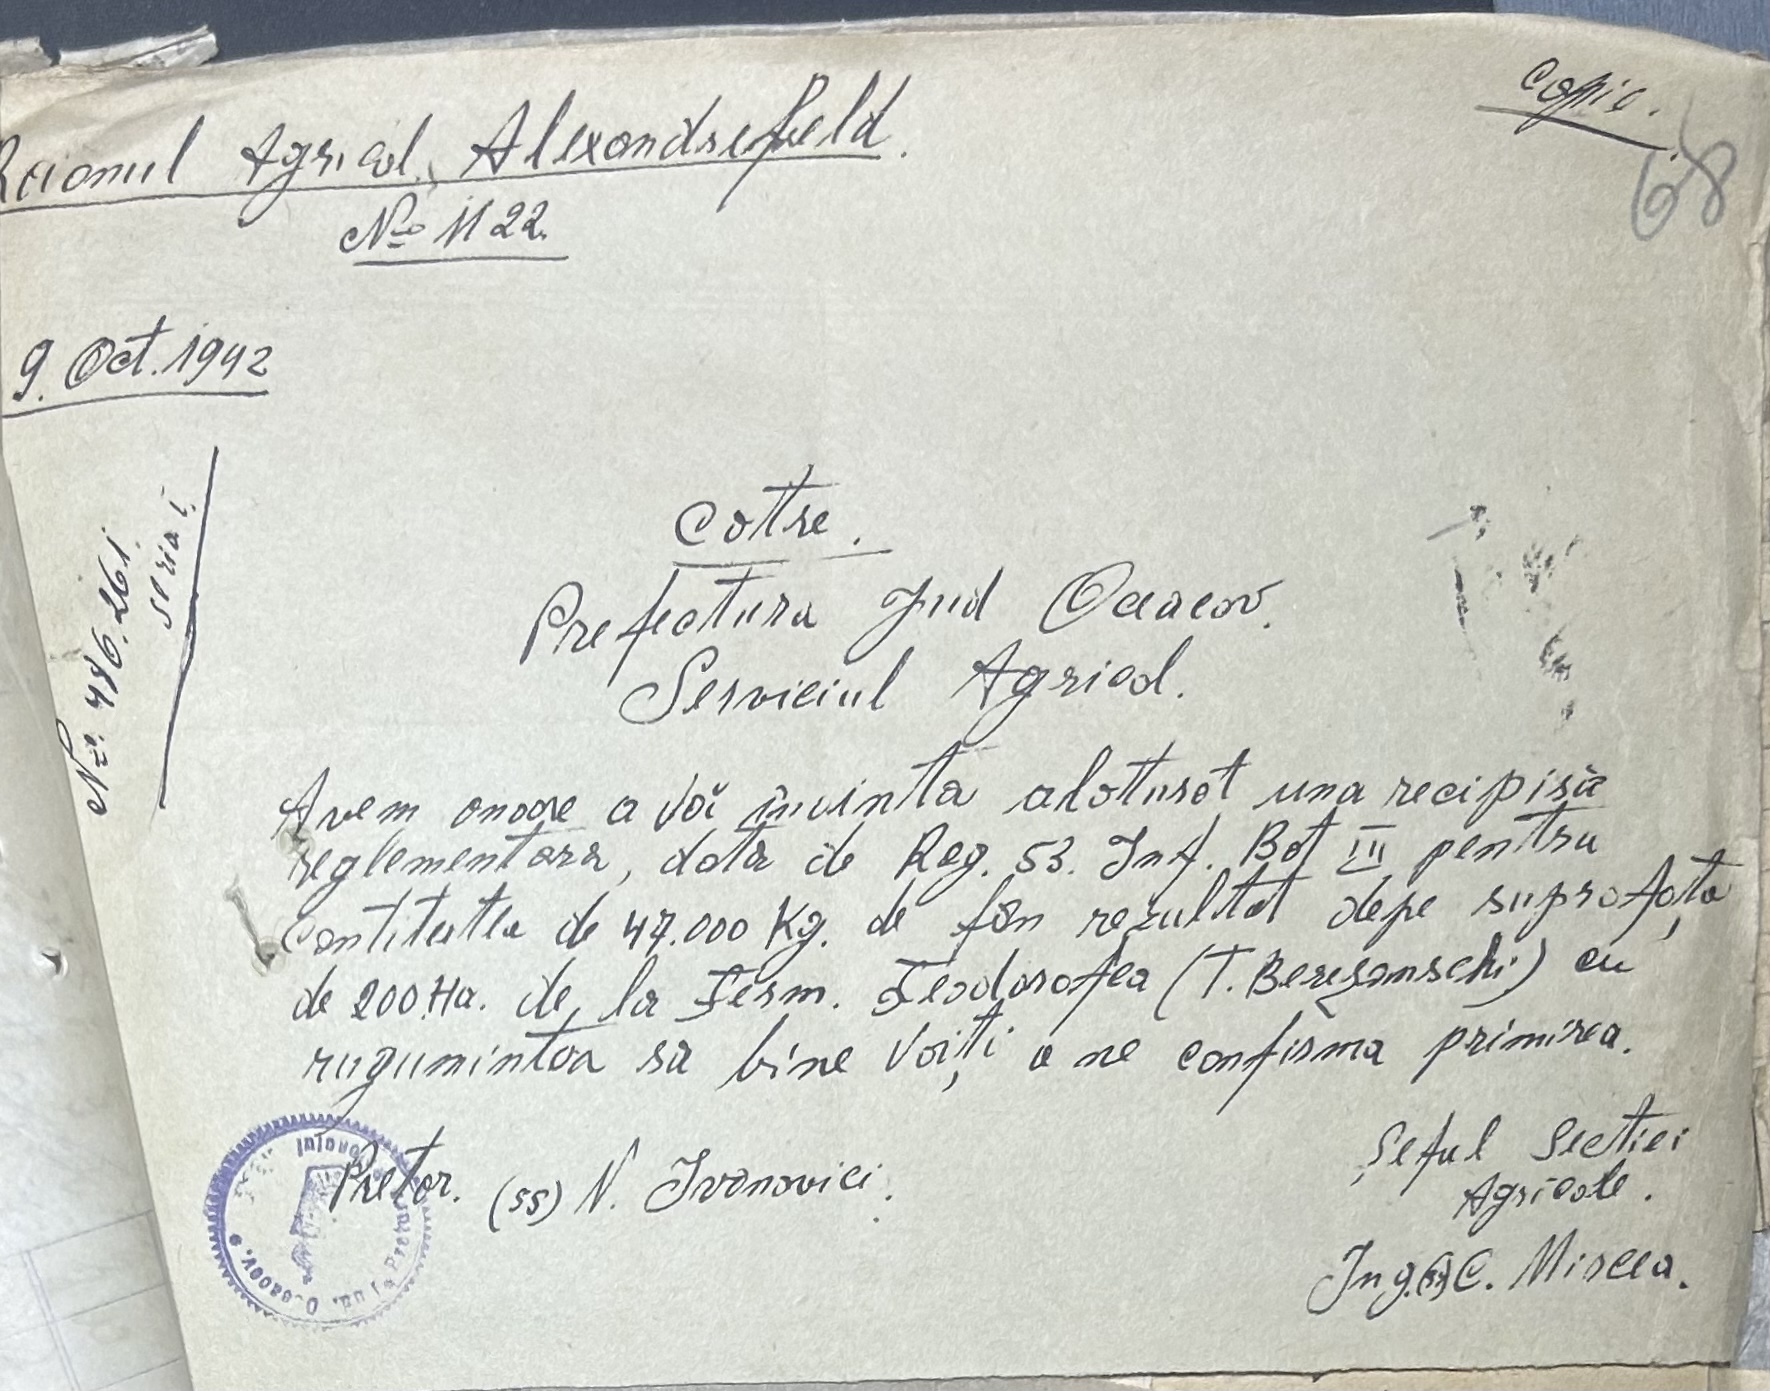 Copie.
68
Raionul Agricol Alexandrefeld.
No 1122.
9. Oct. 1942
No. 486.261.
seria I.
Cottre.
Prefectura Jud Oceacov.
Serviciul Agricol.
Avem onoare a vă înainta alaturat una recipisă
reglementara, data de Reg. 53. Inf. Bat III pentru
Contitatea de 47.000 Kg. de fân rezultat depe suprafața
de 200 Ha. de la Ferm. Feodorofea (T. Berezanschi) cu
rugumintea sa bine voiți a ne confirma primirea.
Pretor. (ss) N. Ivanovici.
Șeful Sectiei
Agricole.
Ing. (ss) C. Mircea.